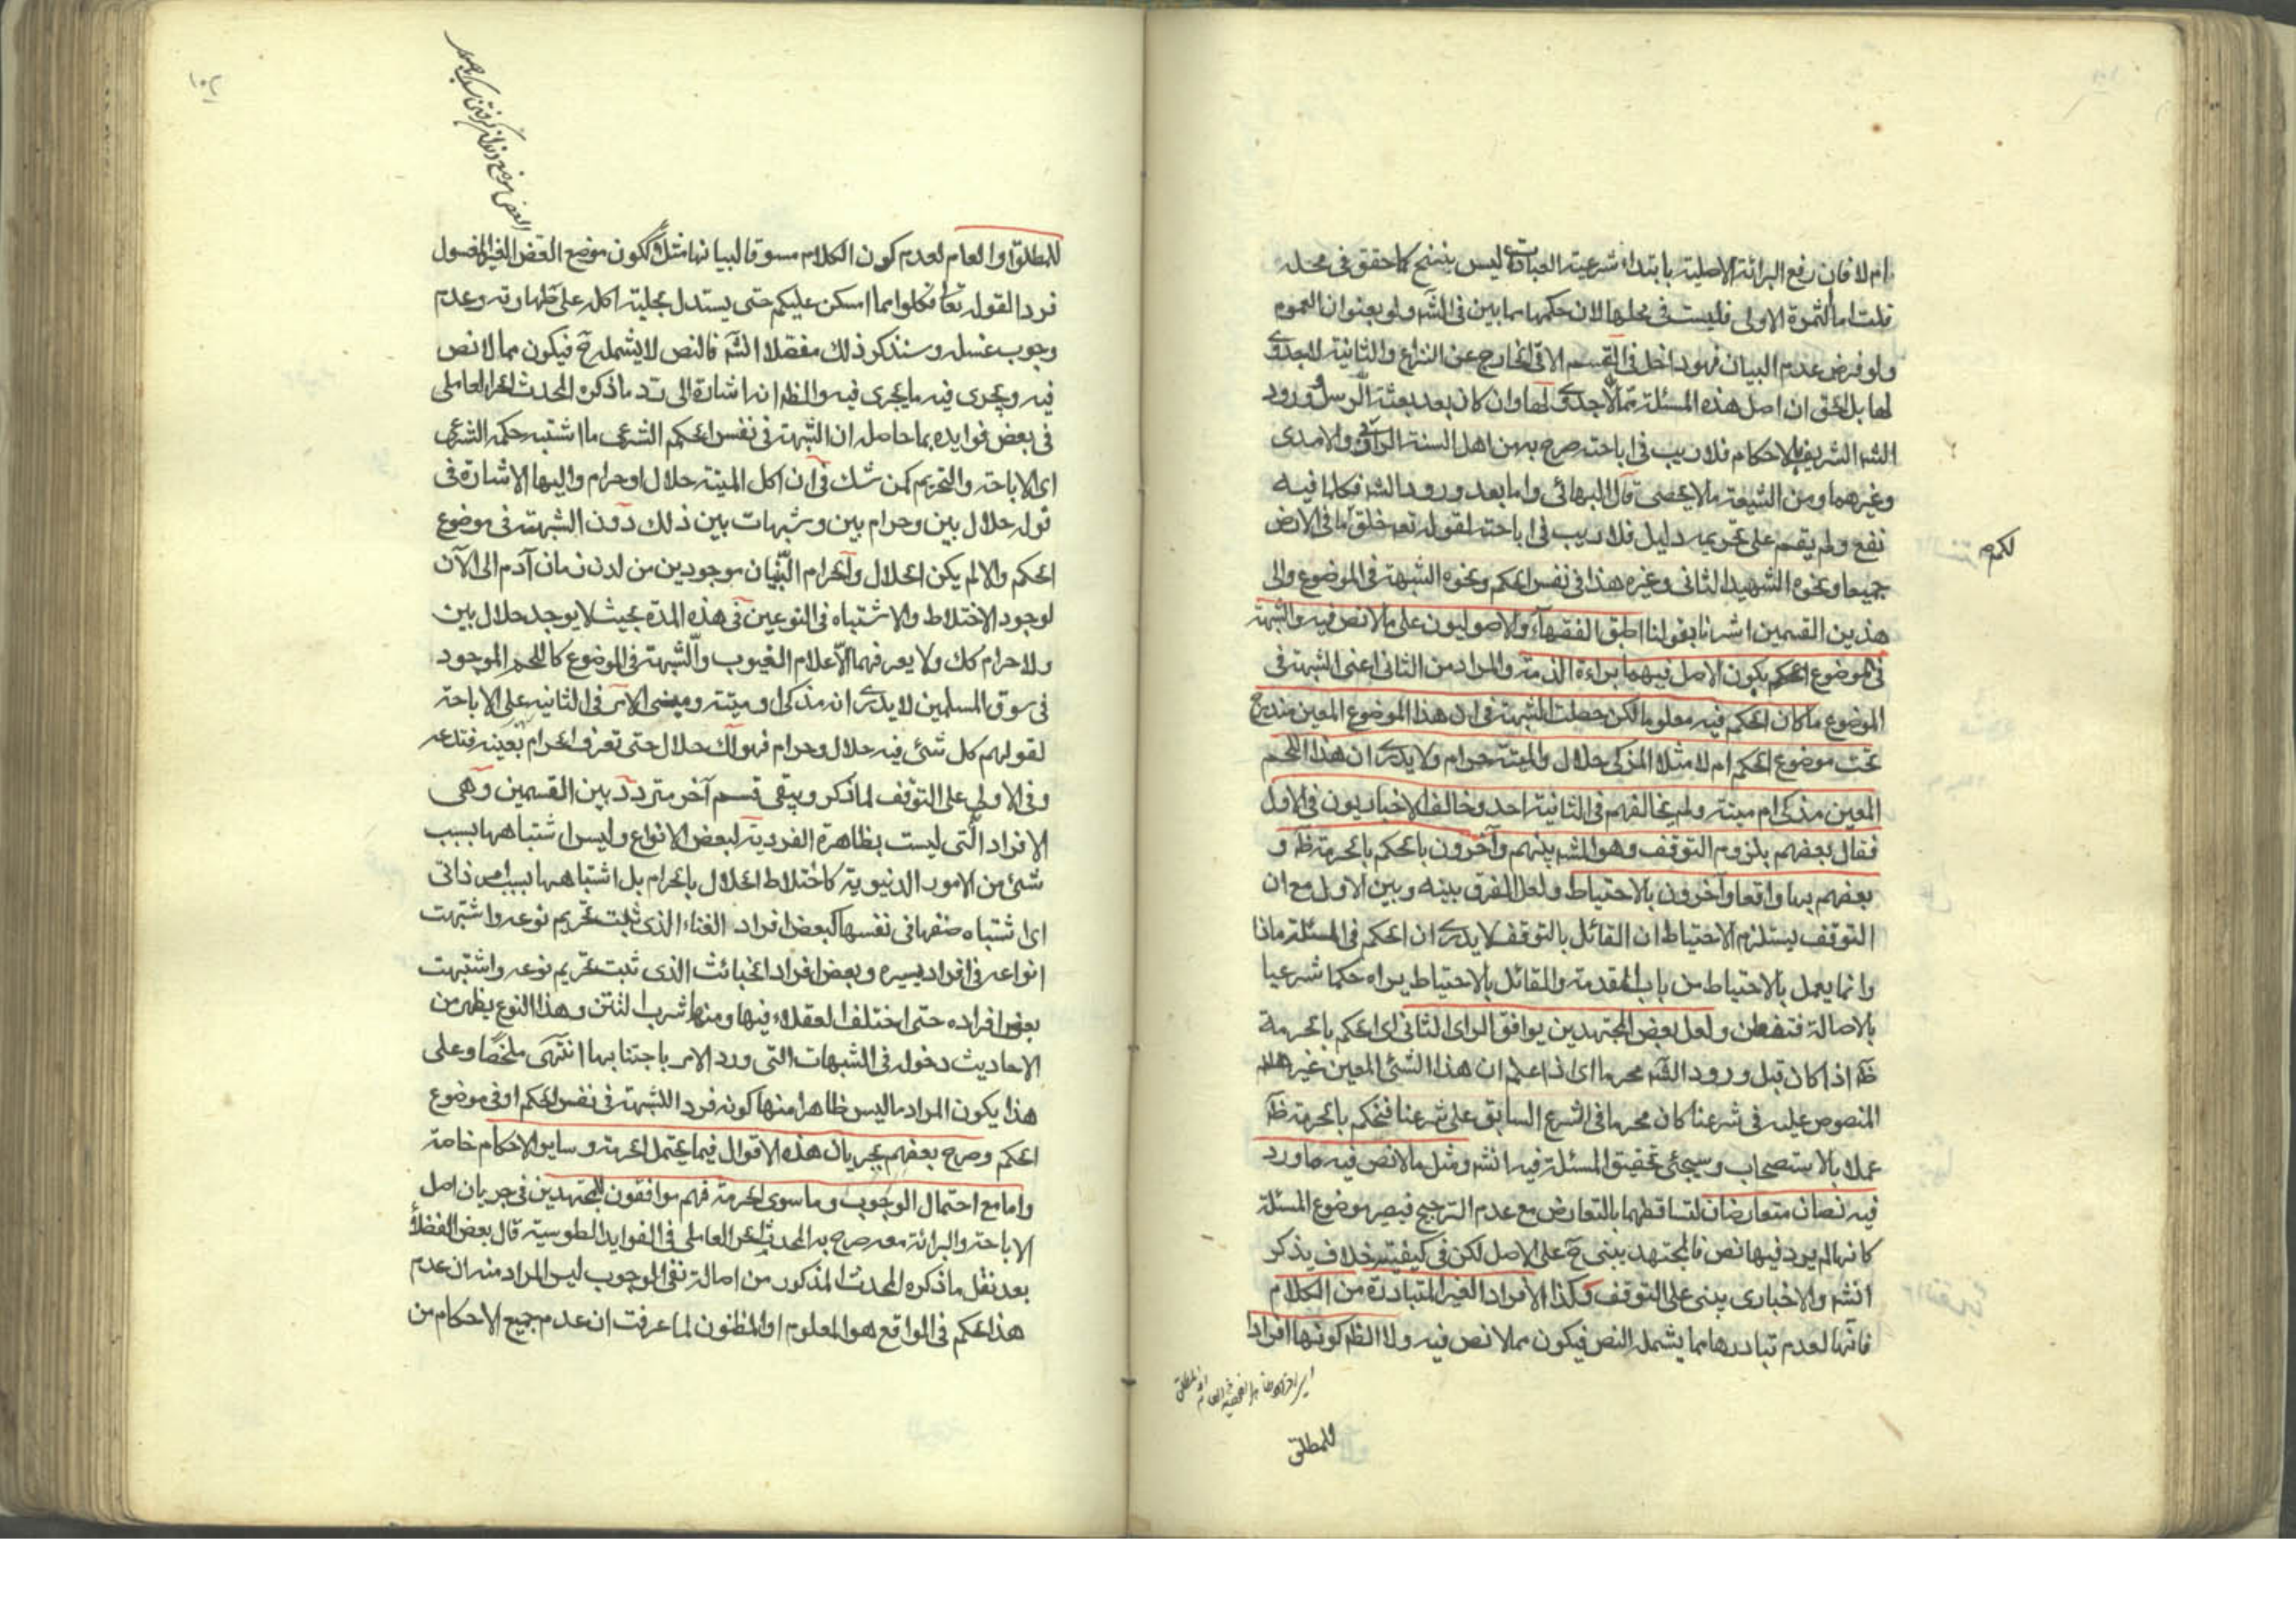 ام لا فان رفع البرائة الاصلية بابتداء شرعية العبادات ليس بنسخ كما حقق فى محله
قلت اما الثمرة الاولى فليست فى محلها لان حكمها مما بين فى الشه ولو بعنوان العموم
ولو فرض عدم البيان فهو داخل فى القسم الاتى الخارج عن النزاع والثانية لا جدوى
لها بل الحق ان اصل هذه المسئلة مما لا جدوى لها وان كان بعد بعثة الرسل و ورود
الشه الشريف بالاحكام فلا ريب فى اباحته صرح به من اهل السنة الرافعى والامدى
وغيرهما ومن الشيعة ما لا يحصى قال البهائى واما بعد ورود الشه فكلما فيه
نفع ولم يقم على تحريمه دليل فلا ريب فى اباحته لقوله تعه خلق ما فى الارض
لكم
جميعا ونحوه الشهيد الثانى وغيره هذا فى نفس الحكم ونحوه الشبهة فى الموضوع والى
هذين القسمين اشرنا بقولنا اطبق الفقهاء والاصوليون على ما لا نص فيه والشبهة
فى الموضوع الحكم بكون الاصل فيهما براءة الذمة والمراد من الثانى اعنى الشبهة فى
الموضوع ما كان الحكم فيه معلوما لكن حصلت الشبهة فى ان هذا الموضوع المعين مندرج
تحت موضوع الحكم ام لا مثلا المذكى حلال والميتة حرام ولا يدرى ان هذا اللحم
المعين مذكى ام ميتة ولم يخالفهم فى الثانية احد وخالف الاخباريون فى الاول
فقال بعضهم بلزوم التوقف وهو المشه بينهم وآخرون بالحكم بالحرمة ظه و
بعضهم بها واقعا وآخرون بالاحتياط ولعل الفرق بينه وبين الاول مع ان
التوقف يستلزم الاحتياط ان القائل بالتوقف لا يدرى ان الحكم فى المسئلة ماذا
وانما يعمل بالاحتياط من باب المقدمة والقائل بالاحتياط يراه حكما شرعيا
بالاصالة فتفطن ولعل بعض المجتهدين يوافق الراى الثانى اى الحكم بالحرمة
ظه اذا كان قبل ورود الشه محرما اى اذا علم ان هذا الشئ المعين غير
المنصوص عليه فى شرعنا كان محرما فى الشرع السابق على شرعنا فنحكم بالحرمة ظه
عملا بالاستصحاب وسيجئ تحقيق المسئلة فيه انشه ومثل ما لا نص فيه ما ورد
فيه نصان متعارضان لتساقطهما بالتعارض مع عدم الترجيح فيصير موضوع المسئلة
كانها لم يرد فيها نص فالمجتهد يبنى ح على الاصل لكن فى كيفيته خلاف يذكر
انشه والاخبارى يبنى على التوقف وكذا الافراد الغير المتبادرة من الكلام
فانها لعدم تبادرها مما يشمله النص فيكون مما لا نص فيه ولا الظه كونها افرادا
للمطلق
للمطلق او العام لعدم كون الكلام مسوقا لبيانها مثلا ككون موضع العض الغير المغسول
فردا لقوله تعا فكلوا مما امسكن عليكم حتى يستدل بحلية اكله على طهارته وعدم
وجوب غسله وسنذكر ذلك مفصلا انشه فالنص لا يشمله ح فيكون مما لا نص
فيه ويجرى فيه ما يجرى فيه والظه انه اشارة الى رد ما ذكره المحدث الحر العاملى
فى بعض فوايده بما حاصله ان الشبهة فى نفس الحكم الشرعى ما اشتبه حكمه الشرعى
اى الاباحة والتحريم كمن شك فى ان اكل الميتة حلال او حرام واليها الاشارة فى
قوله حلال بين وحرام بين وشبهات بين ذلك دون الشبهة فى موضوع
الحكم والا لم يكن الحلال والحرام البينان موجودين من لدن زمان آدم الى الآن
لوجود الاختلاط والاشتباه فى النوعين فى هذه المدة بحيث لا يوجد حلال بين
ولا حرام كك ولا يعرفهما الا علام الغيوب والشبهة فى الموضوع كاللحم الموجود
فى سوق المسلمين لا يدرى انه مذكى او ميتة ومبنى الامر فى الثانية على الاباحة
لقولهم كل شئ فيه حلال وحرام فهو لك حلال حتى تعرف الحرام بعينه فتدعه
وفى الاولى على التوقف لما ذكر ويبقى قسم آخر متردد بين القسمين وهى
الافراد التى ليست بظاهرة الفردية لبعض الانواع وليس اشتباهها بسبب
شئ من الامور الدنيوية كاختلاط الحلال بالحرام بل اشتباهها بسبب امر ذاتى
اى اشتباه صنفها فى نفسها كبعض افراد الغناء الذى ثبت تحريم نوعه واشتبهت
انواعه فى افراد يسيره وبعض افراد الخبائث الذى ثبت تحريم نوعه واشتبهت
بعض افراده حتى اختلف العقلاء فيها ومنها شرب التتن وهذا النوع يظهر من
الاحاديث دخوله فى الشبهات التى ورد الامر باجتنابها انتهى ملخصا وعلى
هذا يكون المراد ما ليس ظاهرا منها كونه فردا للشبهة فى نفس الحكم او فى موضوع
الحكم وصرح بعضهم بجريان هذه الاقوال فيما يحتمل الحرمة وساير الاحكام خاصة
واما مع احتمال الوجوب وما سوى الحرمة فهم موافقون للمجتهدين فى جريان اصل
الاباحة والبرائة معه صرح به المحدث الحر العاملى فى الفوايد الطوسية قال بعض الفضلاء
بعد نقل ما ذكره المحدث المذكور من اصالة نفى الوجوب ليس المراد منه ان عدم
هذا الحكم فى الواقع هو المعلوم او المظنون لما عرفت ان عدم جميع الاحكام من